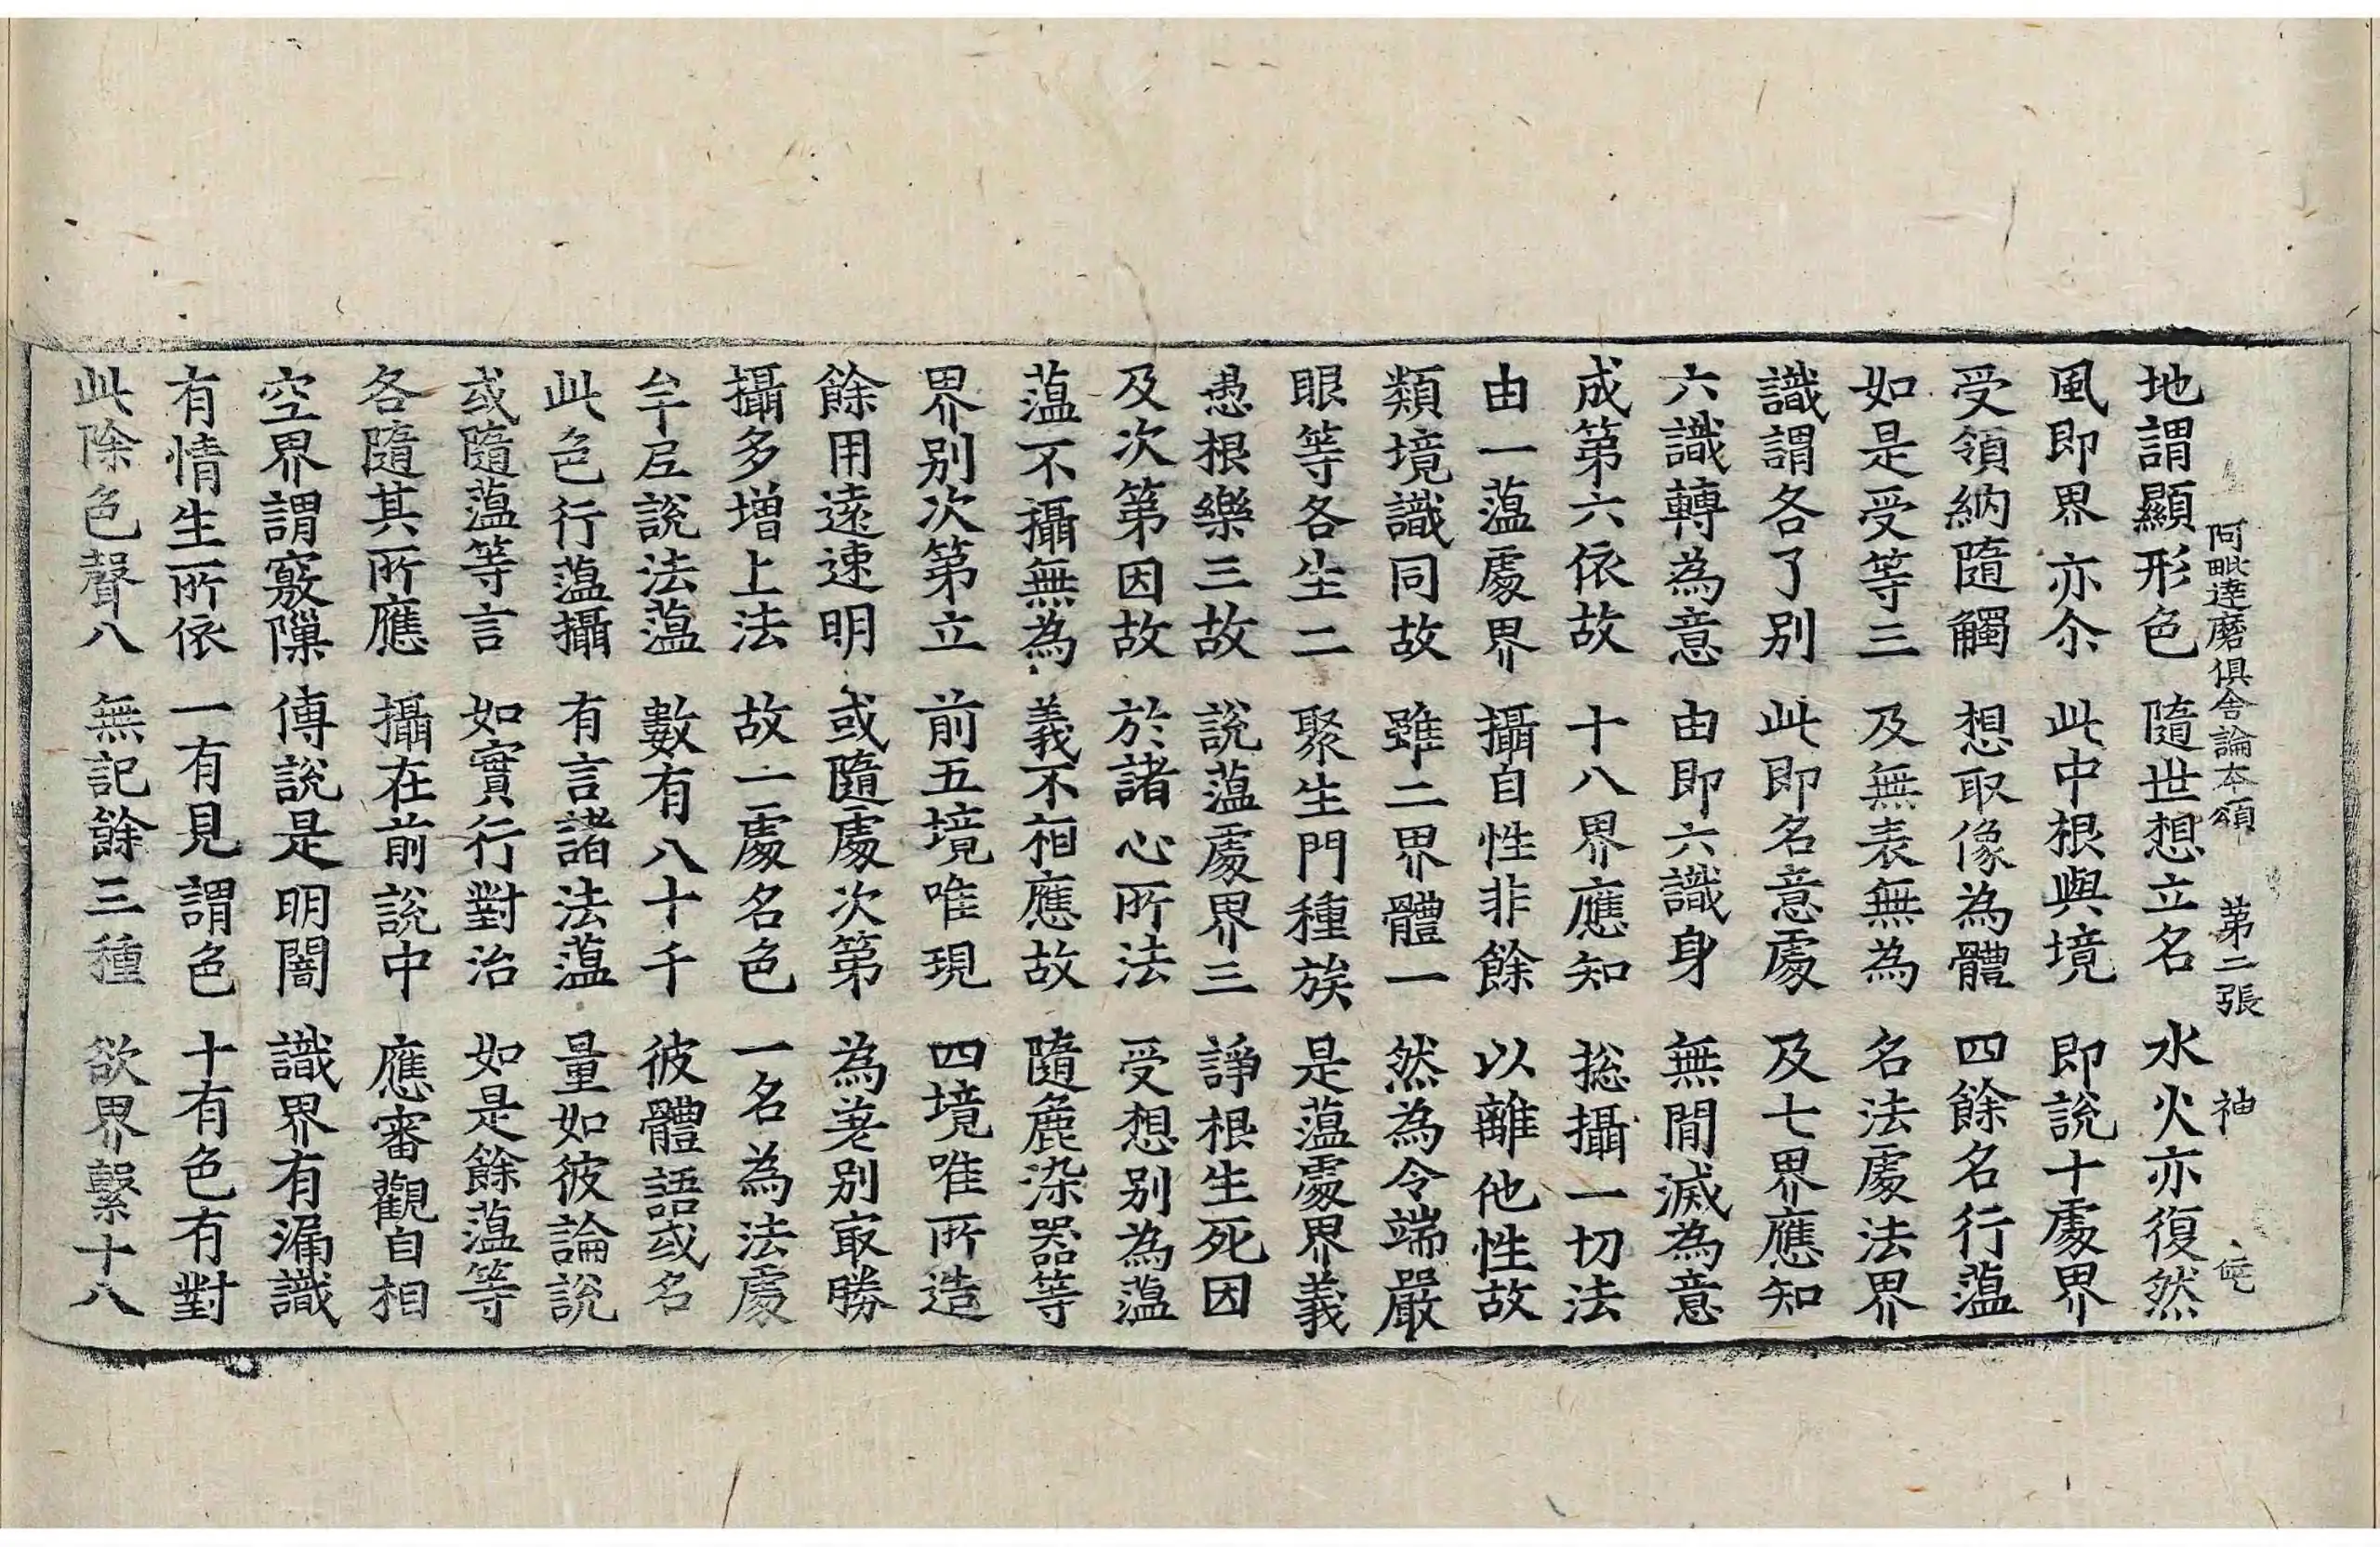 阿毗達磨俱舍論本頌 第二張 神
地謂顯形色 隨世想立名 水火亦復然
風即界亦尒 此中根與境 即說十處界
受領納隨觸 想取像為體 四餘名行蕰
如是受等三 及無表無為 名法處法界
識謂各了別 此即名意處 及七界應知
六識轉為意 由即六識身 無間滅為意
成第六依故 十八界應知 捴攝一切法
由一蕰處界 攝自性非餘 以離他性故
類境識同故 雖二界體一 然為令端嚴
眼等各生二 聚生門種族 是蕰處界義
愚根樂三故 說蕰處界三 諍根生死因
及次第因故 於諸心所法 受想別為蕰
蕰不攝無為 義不相應故 隨麁染器等
界別次第立 前五境唯現 四境唯所造
餘用遠速明 或隨處次第 為差別冣勝
攝多增上法 故一處名色 一名為法處
牟尼說法蕰 數有八十千 彼體語或名
此色行蕰攝 有言諸法蕰 量如彼論說
或隨蕰等言 如實行對治 如是餘蕰等
各隨其所應 攝在前說中 應審觀自相
空界謂竅隟 傳說是明闇 識界有漏識
有情生所依 一有見謂色 十有色有對
此除色聲八 無記餘三種 欲界繫十八